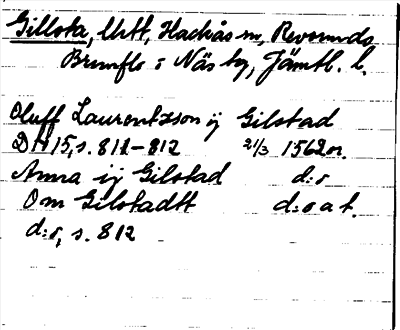 Gillsta, Utt, Hackås sn, Revsunds
Brunflo o Näs tg, Jämtl. l.
Oluff Laurentzson ij Gilstad
DN 15, s. 811-812 21/3 1562 or.
Anna ij Gilstad d:o
Om Gilstadtt d:o a t.
d:o, s. 812